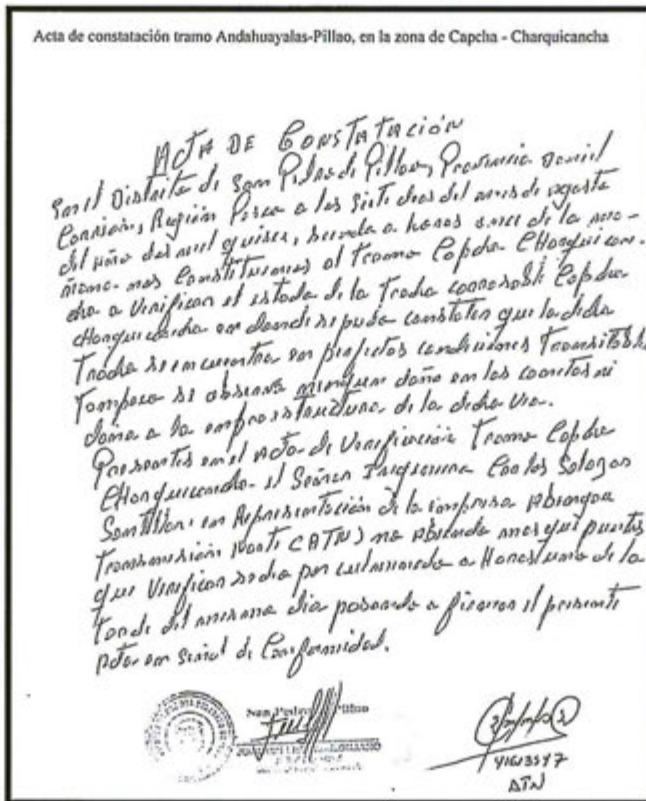 Acta de constatación tramo Andahuayalas-Pillao, en la zona de Capcha - Charquicancha
ACTA DE CONSTATACIÓN
En el Distrito de San Pedro de Pillao, Provincia Daniel
Carrion, Región Pasco a los siete dias del mes de agosto
del año dos mil quince, siendo a horas once de la ma-
ñana nos Constituimos al Tramo Capcha
a Verificar el estado de la Trocha Capcha
en donde se pudo constatar que la dicha
Trocha se encuentra en perfectos condiciones Transitable
Tampoco se observa ningun daño en las cunetas ni
daño a la de la dicha via.
Presentes en el Acta de Verificación Tramo Capcha
el Señor Carlos Salazar
Santillan en Representación de la empresa Abengoa
Transmisión Norte (ATN) no abiendo mas que puntos
que Verificar se dio por culminado a Horas una de la
Tarde del mismo dia pasando a firmar el presente
Acta en Señal de Conformidad.
San Pedro Pillao
ATN